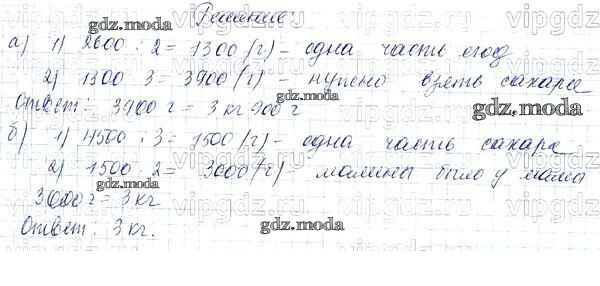 Решение:
а) 1) 2600 : 2 = 1300 (г) - одна часть ягод
2) 1300 · 3 = 3900 (г) - нужно взять сахара
Ответ: 3900 г = 3 кг 900 г
б) 1) 4500 : 3 = 1500 (г) - одна часть сахара
2) 1500 · 2 = 3000 (г) - малины было у мамы
3000 г = 3 кг
Ответ: 3 кг.
gdz.moda
gdz.moda
gdz.moda
gdz.moda
gdz.moda
gdz.moda
gdz.moda